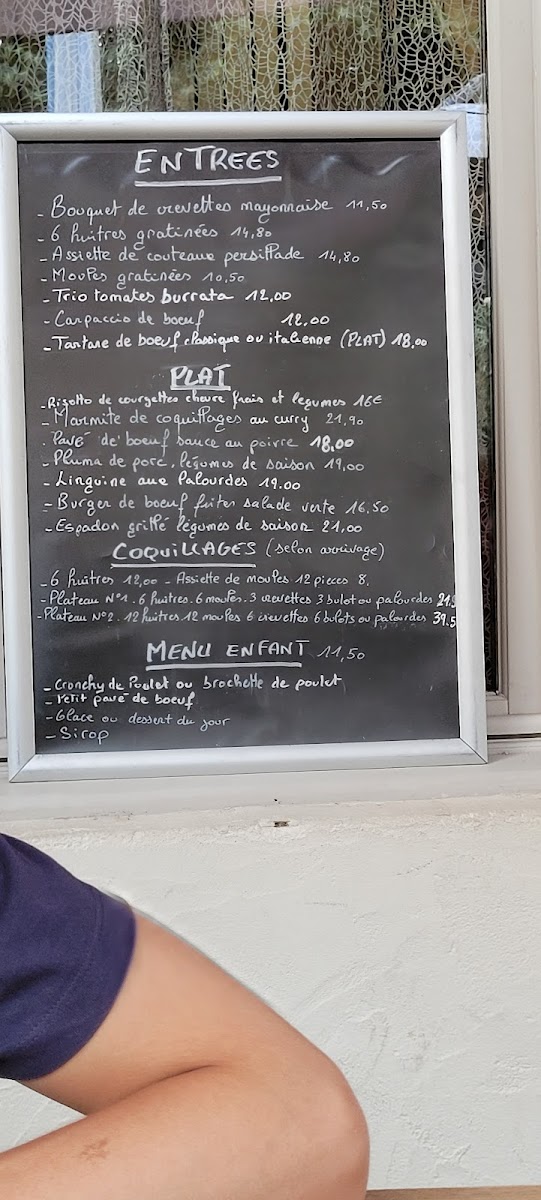 ENTREES
- Bouquet de crevettes mayonnaise 11,50
- 6 huîtres gratinées 14,80
- Assiette de couteaux persillade 14,80
- Moules gratinées 10,50
- Trio tomates burrata 12,00
- Carpaccio de boeuf 12,00
- Tartare de boeuf classique ou italienne (PLAT) 18,00
PLAT
- Risotto de courgettes chevre frais et legumes 16€
- Marmite de coquillages au curry 21,90
- Pavé de boeuf sauce au poivre 18,00
- Pluma de porc, légumes de saison 19,00
- Linguine aux Palourdes 19.00
- Burger de boeuf frites salade verte 16.50
- Espadon grillé légumes de saison 21,00
COQUILLAGES (selon arrivage)
- 6 huîtres 12,00 - Assiette de moules 12 pieces 8,
- Plateau N°1. 6 huîtres. 6 moules. 3 crevettes 3 bulot ou palourdes 21.5
- Plateau N°2. 12 huîtres 12 moules 6 crevettes 6 bulots ou palourdes 39.5
MENU ENFANT 11,50
- Cronchy de Poulet ou brochette de poulet
- Petit pavé de boeuf
- Glace ou dessert du jour
- Sirop